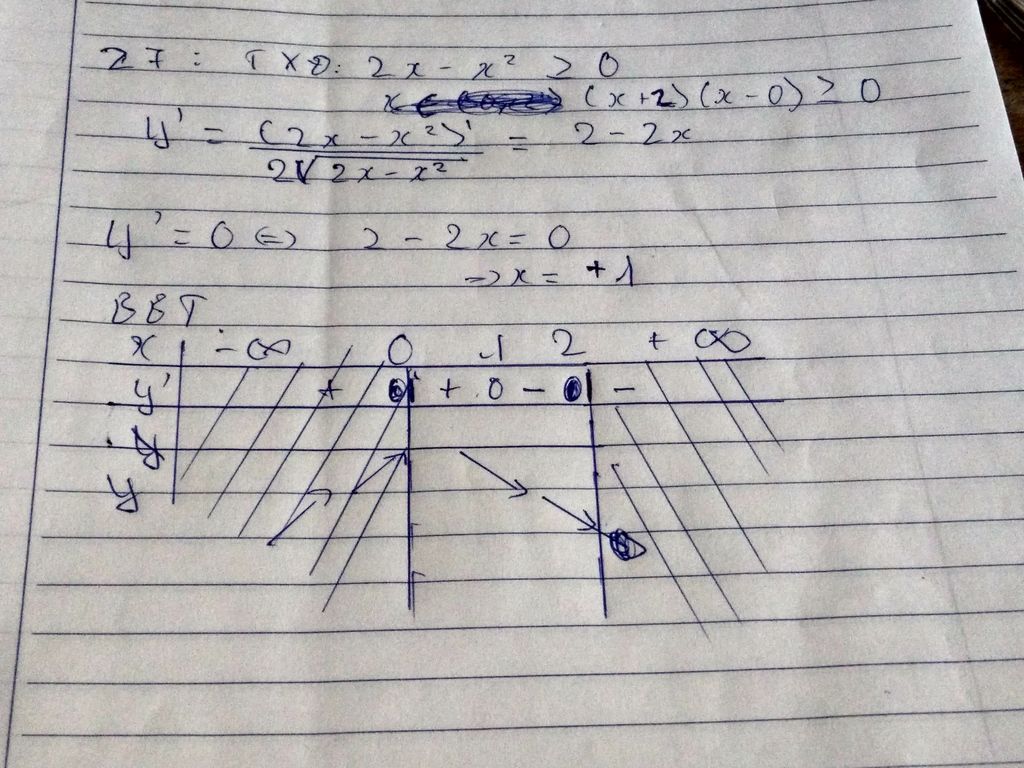 27: TXĐ: 2x - x² ≥ 0
(x+2)(x-0) ≥ 0
y' = (2x - x²)' / 2√(2x - x²) = 2 - 2x
y' = 0 ⇔ 2 - 2x = 0
→ x = +1
BBT
x -∞ 0 1 2 +∞
y' + + 0 - -
y